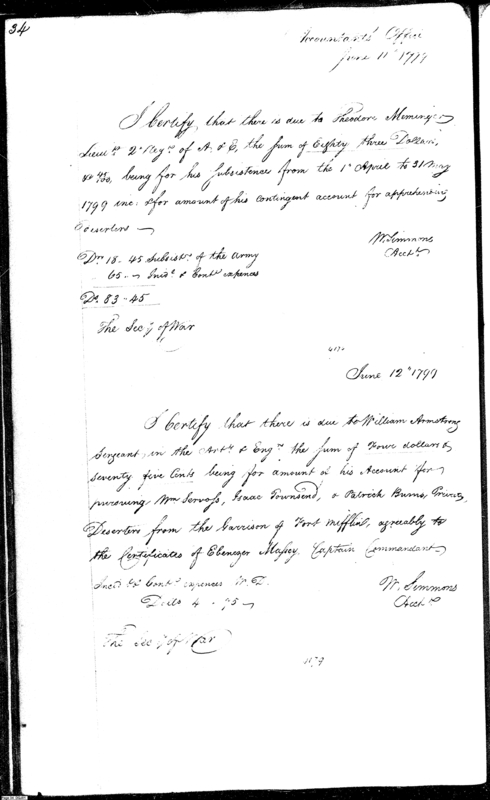 34
Accountants Office
June 11th 1799
I Certify, that there is due to Theodore Meminger
Lieut. 2d Regt. of A. & E, the Sum of Eighty three Dollars,
45/100, being for his Subsistence from the 1st April to 31 May
1799 inc. & for amount of his contingent account for apprehending
Deserters
W. Simmons
Acct.
Drs 18 - 45 Subsist. of the Army
65 - Incid. & Contt. expences
Ds 83 - 45
The Secy of War
June 12th 1799
I Certify that there is due to William Armstrong
Sergeant, in the Arty. & Engrs. the Sum of Four dollars &
Seventy five Cents being for amount of his Account for
pursueing Wm Servoss, Isaac Townsend, & Patrick Burns, Privates,
Deserters from the Garrison of Fort Mifflin, agreably to
the Certificates of Ebenezer Massey Captain Commandant
Incid. & Contt. expences W. D.
Dolls 4 - 75
W. Simmons
Acct.
The Secy of War